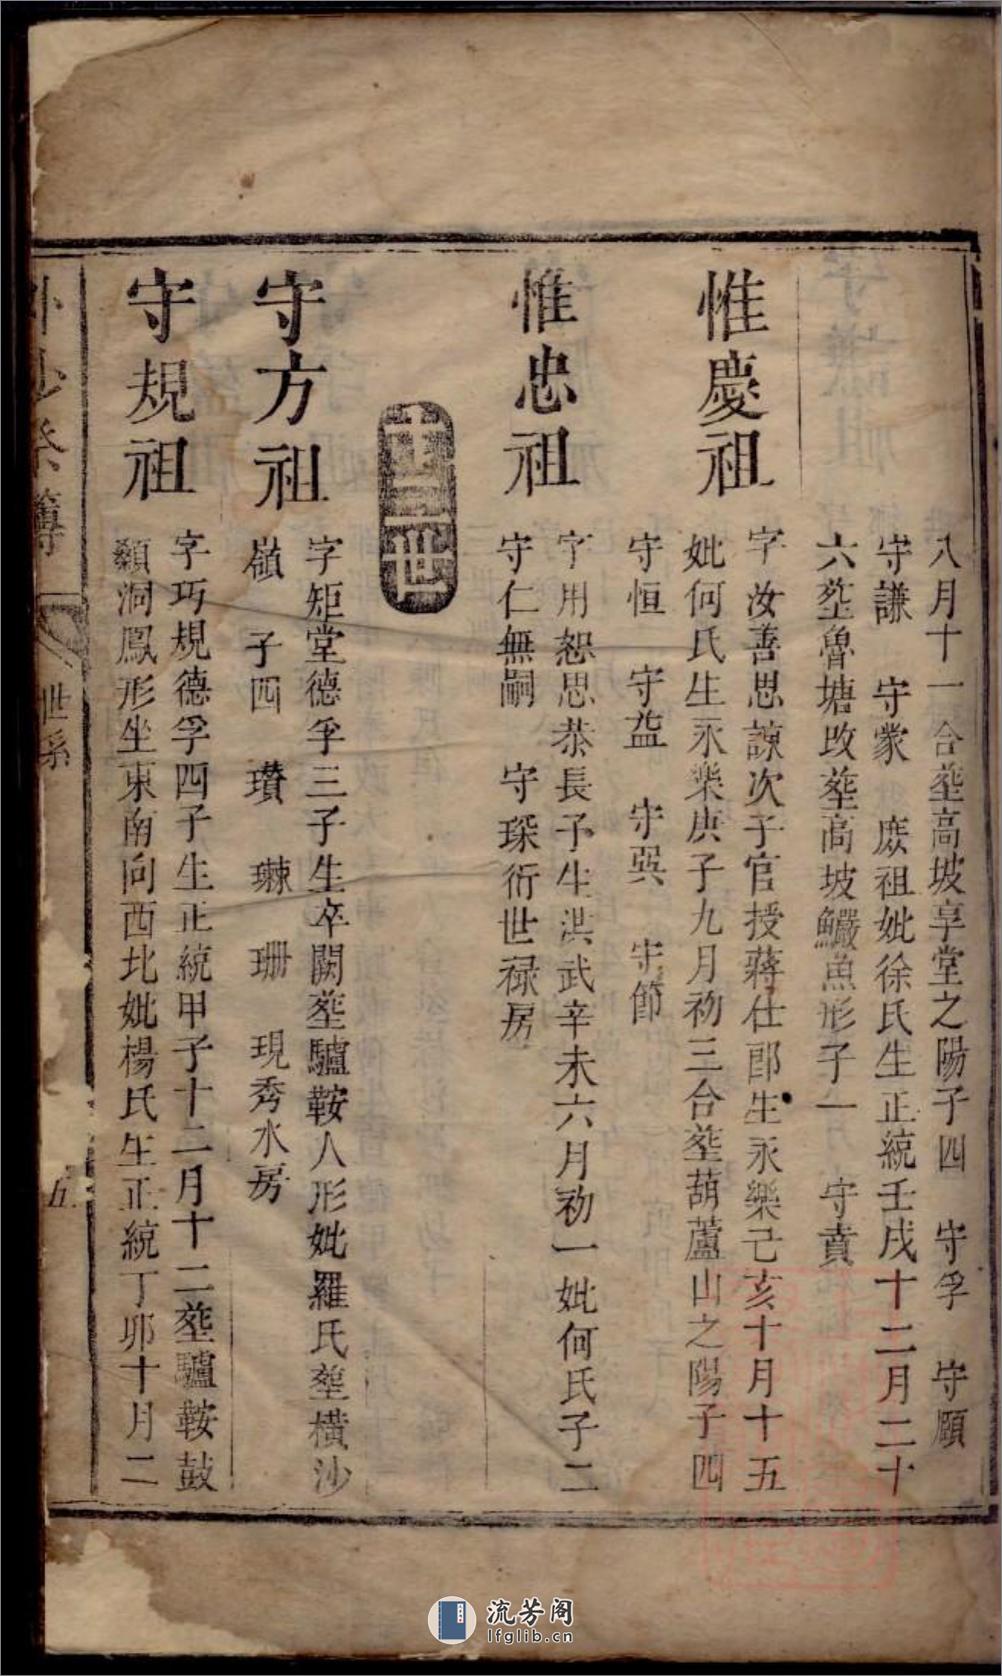 八月十一合塟高坡享堂之陽子四　守孚　守頤
守謙　守蒙　庶祖妣徐氏生正統壬戌十二月二十
六塟魯塘攺塟高坡鱺魚形子一　守賁
惟慶祖
字汝善思諒次子官授蔣仕郎生永樂己亥十月十五
妣何氏生永樂庚子九月初三合塟葫蘆山之陽子四
守恒　守益　守巽　守節
惟忠祖
字用恕思恭長子生洪武辛未六月初一妣何氏子二
守仁無嗣　守琛衍世禄房
十三世
守方祖
字矩堂德孚三子生卒闕塟驢鞍人形妣羅氏塟橫沙
嶺　子四　瓚　㻋　珊　現秀水房
守規祖
字巧規德孚四子生正統甲子十二月十二塟驢鞍鼓
顙洞鳳形坐東南向西北妣楊氏生正統丁卯十月二
世系
五
流芳阁
lfglib.cn